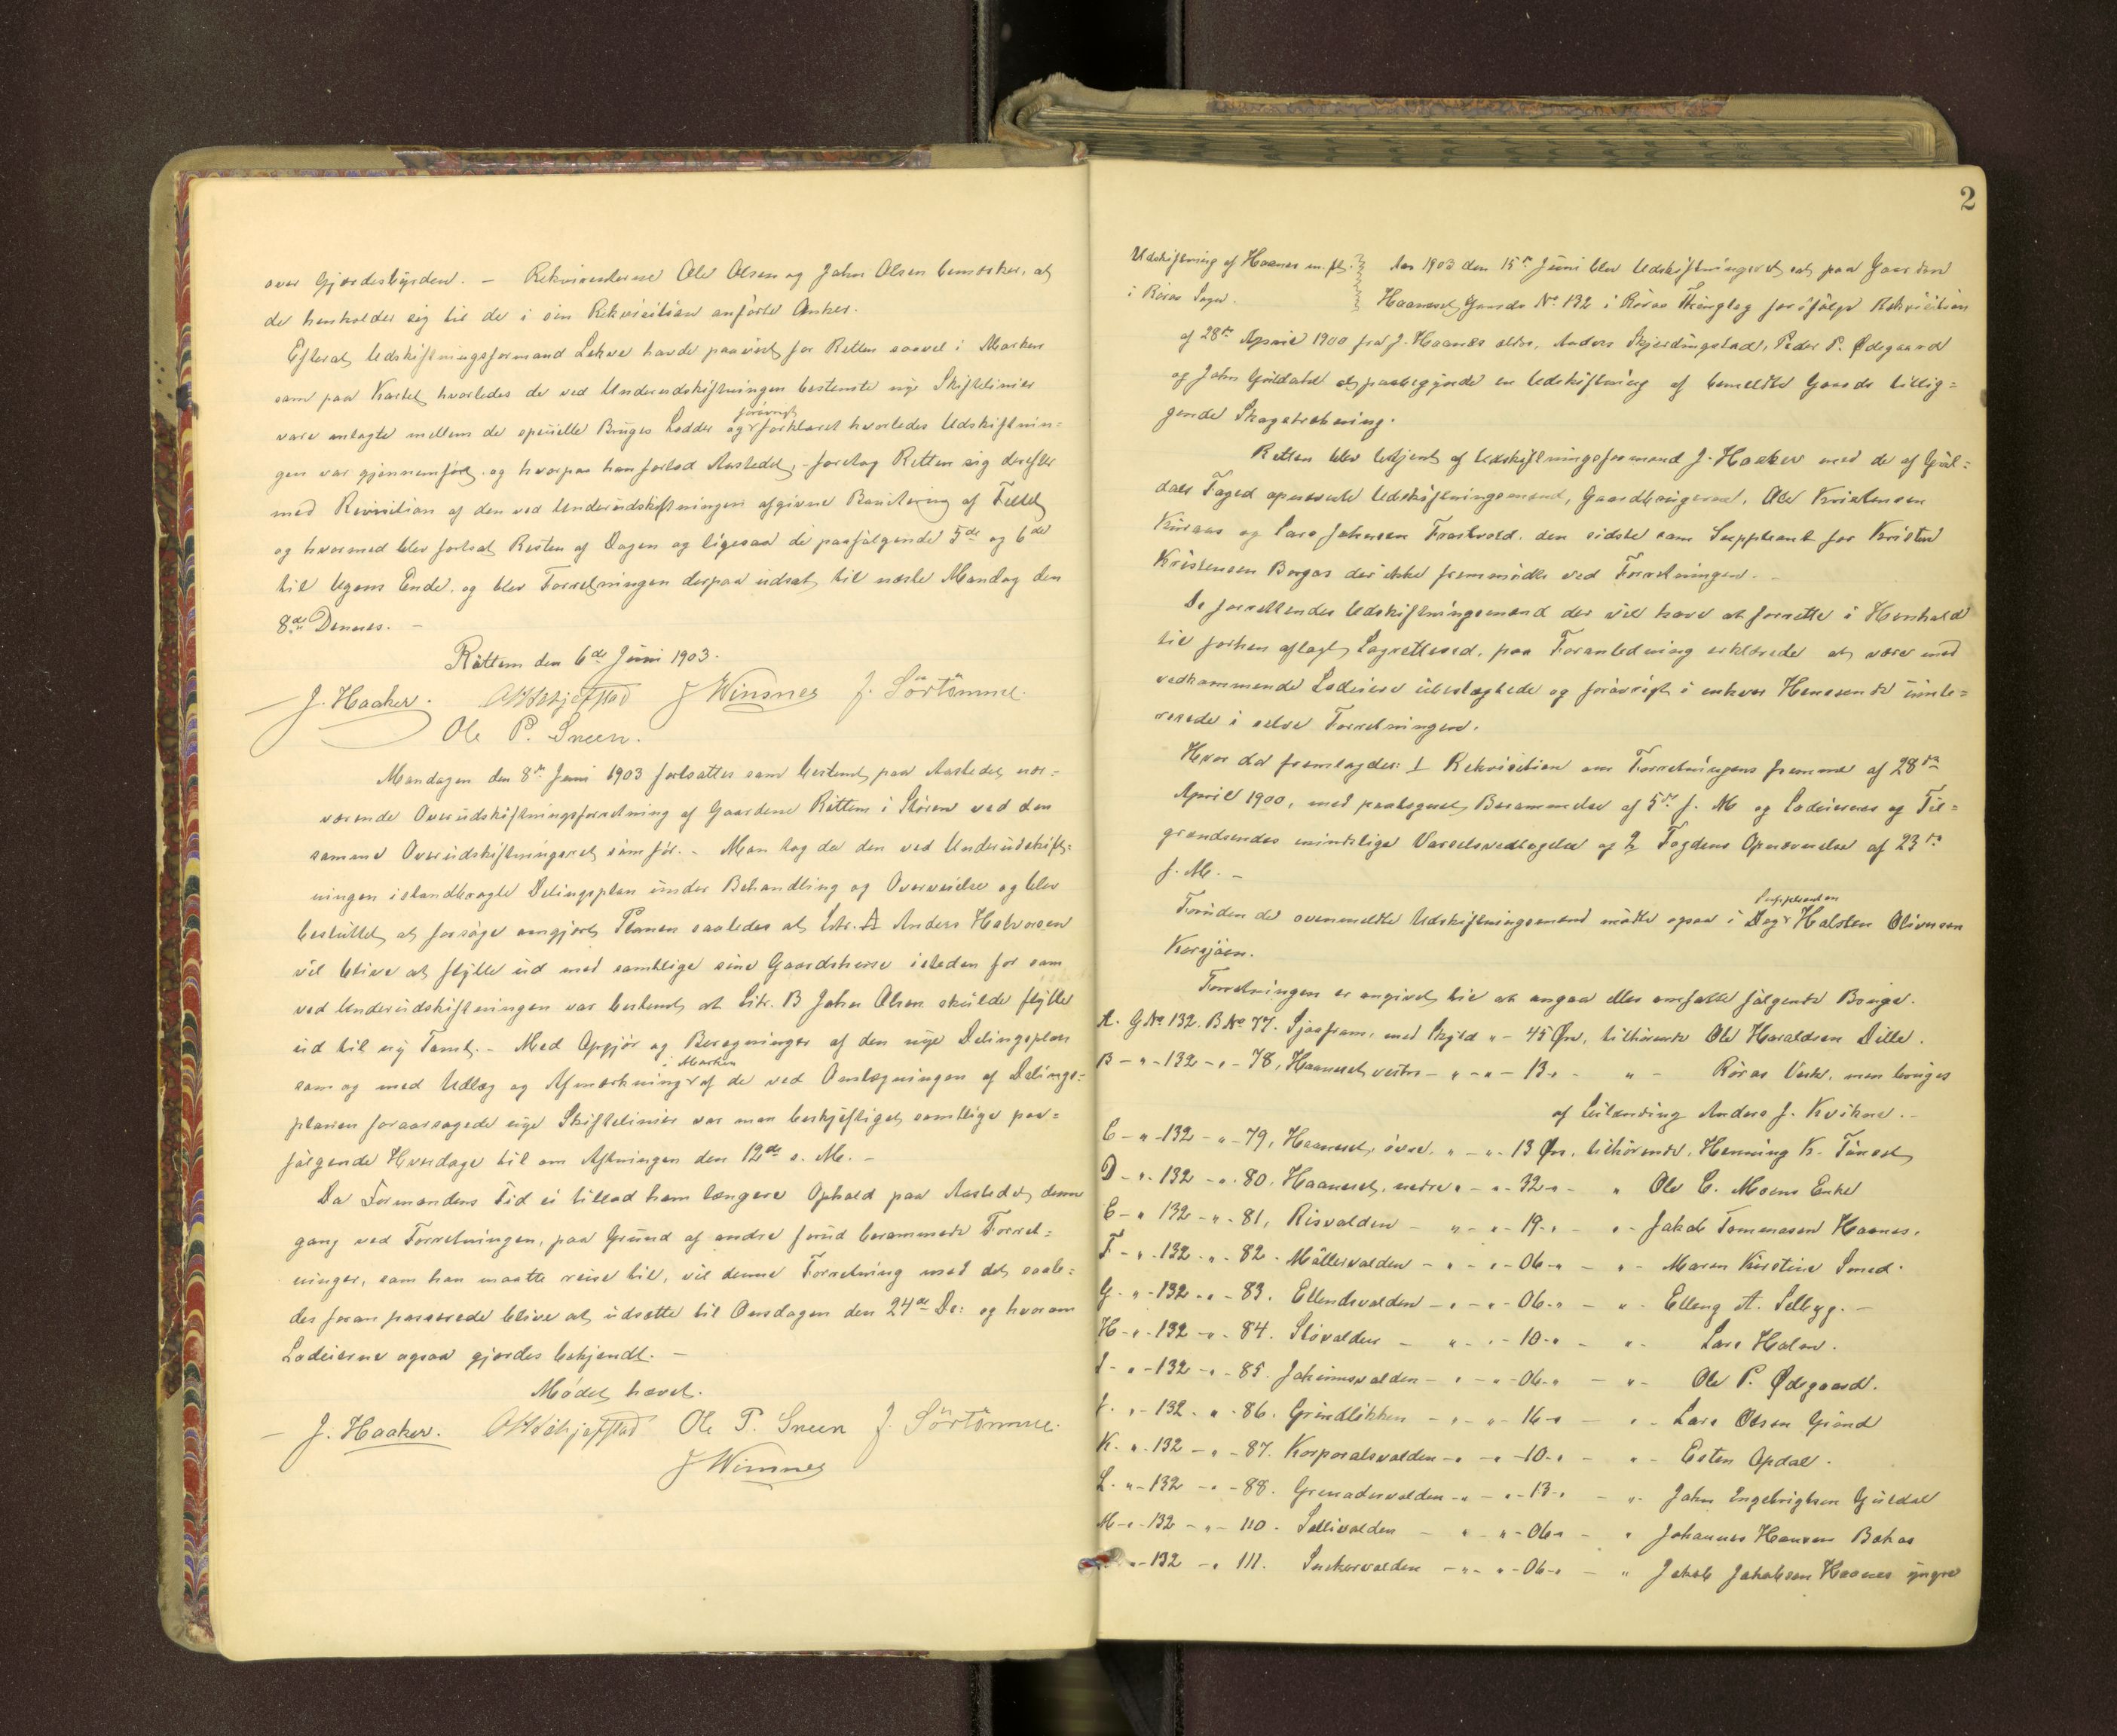 over Gjærdesbyrden. — Rekvirenterne Ole Olsen og John Olsen bemærker, at
de henholder sig til de i sin Rekvisition anførte Anker.
Efterat Udskiftningsformand Lehve havde paavist for Retten saavel i Marken
som paa Kartet hvorledes de ved Underudskiftningen bestemte nye Skiftelinier
vare anlagte mellem de specielle Bruges Lodder og forøvrigt forklaret hvorledes Udskiftnin=
gen var gjennemført og hvorpaa han forlod Aastedet, – foretog Retten sig derefter
med Revisition af den ved Underudskiftningen afgivne Bonitering af Feltet
og hvormed blev fortsat Resten af Dagen og ligesaa de paafølgende 5de og 6de
til Ugens Ende, og blev Forretningen derpaa udsat til næste Mandag den
8de Dennes. —
Røttem den 6de Juni 1903.
J. Haaker. J Winsnes J. Sörtömme.
Ole P. Sneen.
Mandagen den 8de Juni 1903 fortsattes som bestemt paa Aastedet nær=
værende Overudskiftningsforretning af Gaardene Röttem i Stören ved den
samme Overudskiftningsret som för. – Man tog da den ved Underudskift=
ningen istandbragte Delingsplan under Behandling og Overveielse og blev
besluttet at forsöge omgjort Planen saaledes at Litr. A Anders Halvorsen
vil blive at flytte ud med samtlige sine Gaardshuse isteden for som
ved Underudskiftningen var bestemt at Litr. B John Olsen skulde flytte
ud til ny Tomt. – Med Opgjör og Beregninger af den nye Delingsplan
som og med Udlæg og Afmærkning i Marken af de ved Omlægningen af Delings=
planen foraarsagede nye Skiftelinier var man beskjæftiget samtlige paa=
følgende Hverdage til om Aftningen den 12de s. M. –
Da Formandens Tid ei tillod ham længere Ophold paa Aastedet denne
gang ved Forretningen, paa Grund af andre forud berammede Forret=
ninger, som han maatte reise til, vil denne Forretning med det saale=
des foran passerede blive at udsætte til Onsdagen den 24de Ds: og hvorom
Lodeierne ogsaa gjordes bekjendt. —
Mødet hævet.
J. Haaker. Ole P. Sneen J. Sörtömme.
J Winsnes
2
Udskiftning af Haanes m. fl.
i Röros Sogn.
Aar 1903 den 15de Juni blev Udskiftningsret sat paa Gaarden
Haaneset Gaards No 132 i Röros Thinglag for ifølge Rekvisition
af 28de April 1900 fra J. Haanes ældre, Anders Skjerdingstad, Peder P. Ødegaard
og John Guldal at paabegynde en Udskiftning af bemeldte Gaards tillig=
gende Skogstrækning.
Retten blev betjent af Udskiftningsformand J. Haaker med de af Gul=
dals Foged opnævnte Udskiftningsmænd, Gaardbrugerne, Ole Kristensen
Kuraas og Lars Johnsen Frostvold, den sidste som Suppleant for Kristen
Kristensen Borgos der ikke fremmødte ved Forretningen. –
De forrettende Udskiftningsmænd der vil have at forrette i Henhold
til forhen aflagt Lagretteed, paa Foranledning erklærede at være med
vedkommende Lodeiere ubeslægtede og forøvrigt i enhver Henseende uinte=
resede i selve Forretningen.
Hvor da fremlagdes: 1 Rekvisition om Forretningens fremme af 28de
April 1900, med paategnet Berammelse af 5te f. M og Lodeiernes og Til=
grændsendes mindelige Varselsvedtagelse og 2 Fogdens Opnævnelse af 23de
f. M. –
Foruden de ovenmeldte Udskiftningsmænd mødte ogsaa i Dag Suppleanten Halsten Oliversen
Korsjöen.
Forretningen er angivet til at angaa eller omfatte følgende Bruge.
A. GNo 132. BNo 77. Sjoafram, med Skyld „ – 45 Øre, tilhørende Ole Haraldsen Dille.
B – „ – 132 – „ – 78, Haaneset vestre – „ – „ – 13 „ – „ – Röros Verk, men bruges
af Leilænding Anders J. Kvikne. –
C – „ – 132 – „ – 79, Haaneset, övre, „ – „ – 13 Øre, tilhørende, Henning K. Tamnes
D – „ – 132 – „ – 80, Haaneset, nedre „ – „ – 32 „ – „ Ole C. Moens Enke
E – „ 132 – „ – 81, Risvolden – „ – „ – 19 „ – „ – Jakob Tommasen Haanes.
F – „ – 132 – „ – 82. Möllervolden – „ – „ – 06 „ – „ – Maren Kirstine Smed.
G. „ – 132 – „ – 83. Ellendsvolden – „ – „ – 06 „ – „ – Elleng A. Selbyg. –
H – „ – 132 – „ – 84. Slövolden – „ – „ – 10 „ – „ – Lars Holm.
I – „ – 132 – „ – 85. Johannsvolden – „ – „ – 06 „ – „ – Ole P. Ødegaard.
J. „ – 132 – „ – 86. Grindløkken – „ – „ – 16 „ – „ – Lars Olsen Grind
K. „ – 132 – „ – 87. Korporalsvolden – „ – „ – 10 „ – „ – Esten Opdal.
L. „ – 132 – „ – 88. Grenadervolden – „ – „ – 13 „ – „ – John Engebrigtsen Guldal
M – „ – 132 – „ – 110. Sellivolden – „ – „ – 06 „ – „ Johannes Hansen Bakos
„ – 132 – „ 111. Snekervolden – „ – „ – 06 „ – „ Jakob Jakobsen Haanes yngre